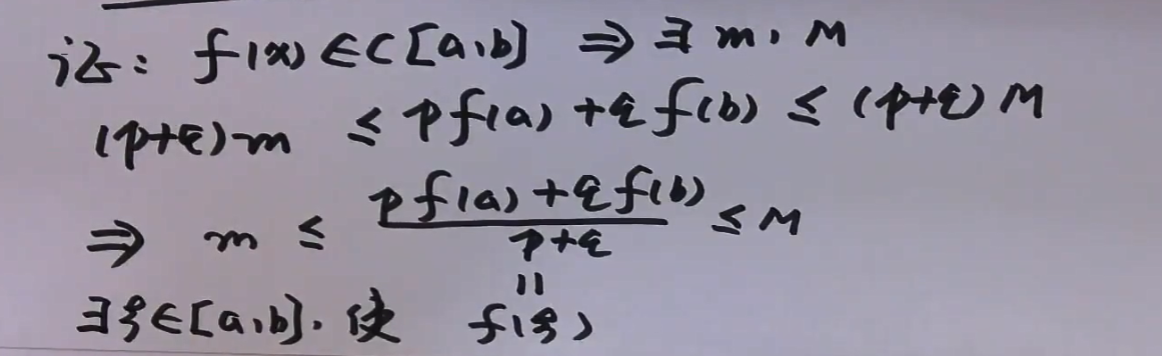 证: f(x)∈C[a,b] ⇒ ∃ m, M
(p+q)m ≤ pf(a)+qf(b) ≤ (p+q)M
⇒ m ≤ \frac{pf(a)+qf(b)}{p+q} ≤ M
∃ξ∈[a,b], 使 f(ξ)